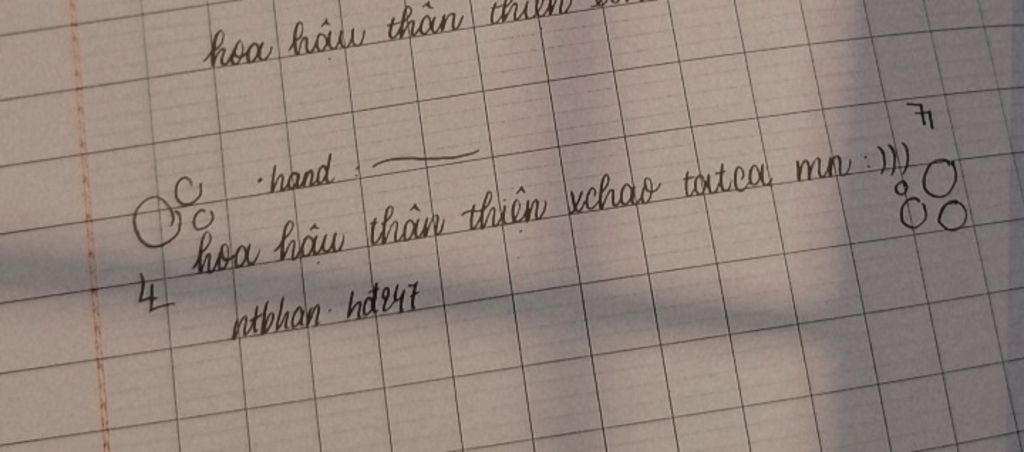 hoa hậu thân thiện
7
·hand:
hoa hậu thân thiện xchao tatca mn :)))
4
ntbhan. hd247